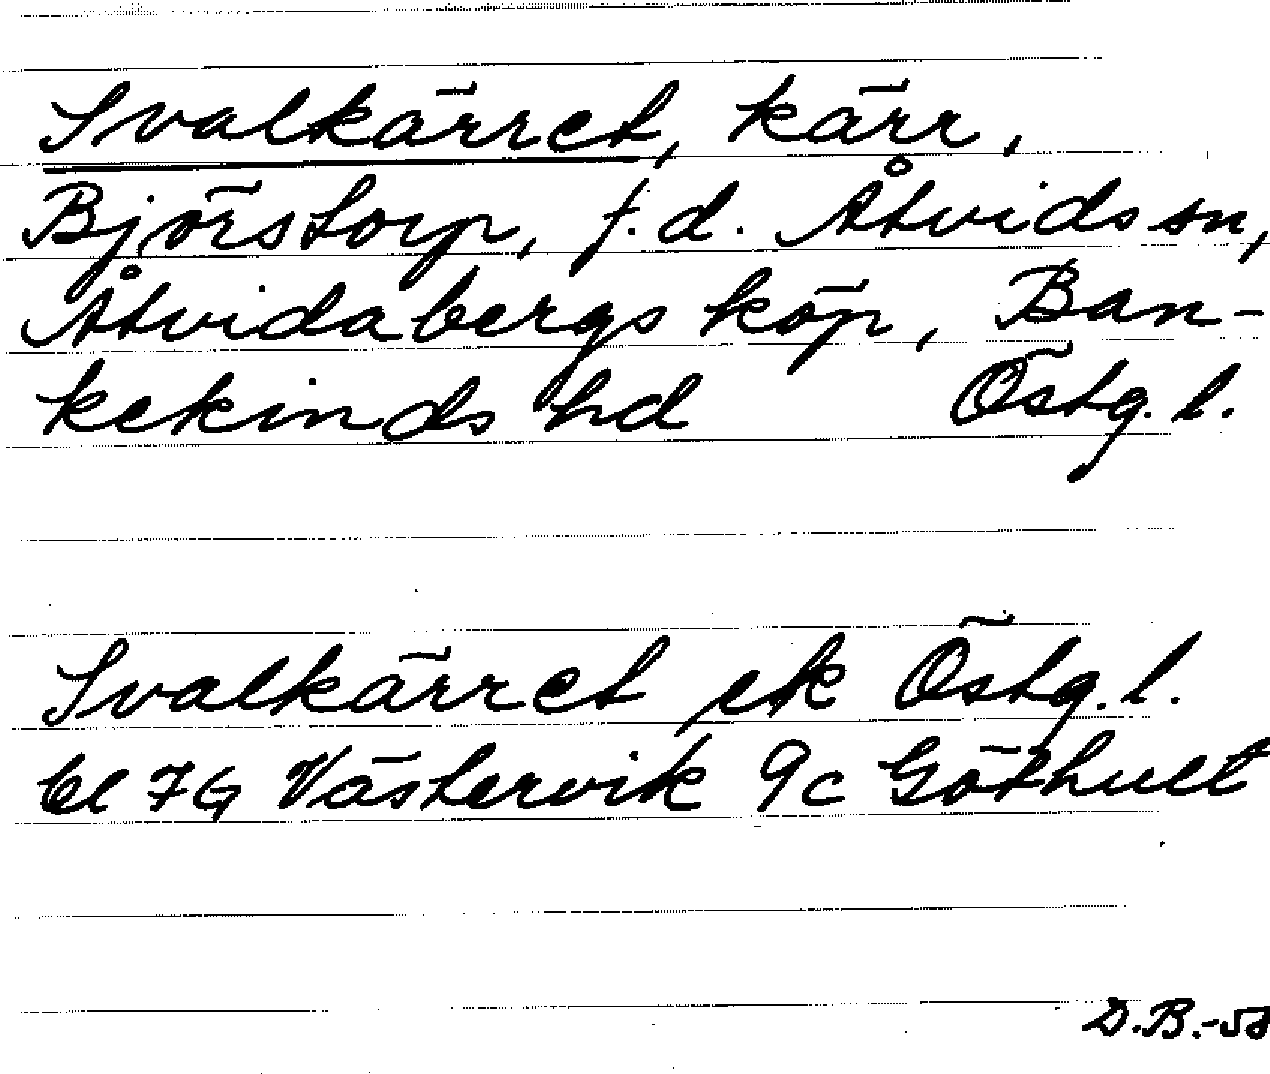 Svalkärret, kärr,
Björstorp, f.d. Åtvids sn,
Åtvidabergs köp, Ban-
kekinds hd Östg. l.
Svalkärret ek Östg. l.
bl 7G Västervik 9c Göthult
D.B.-58